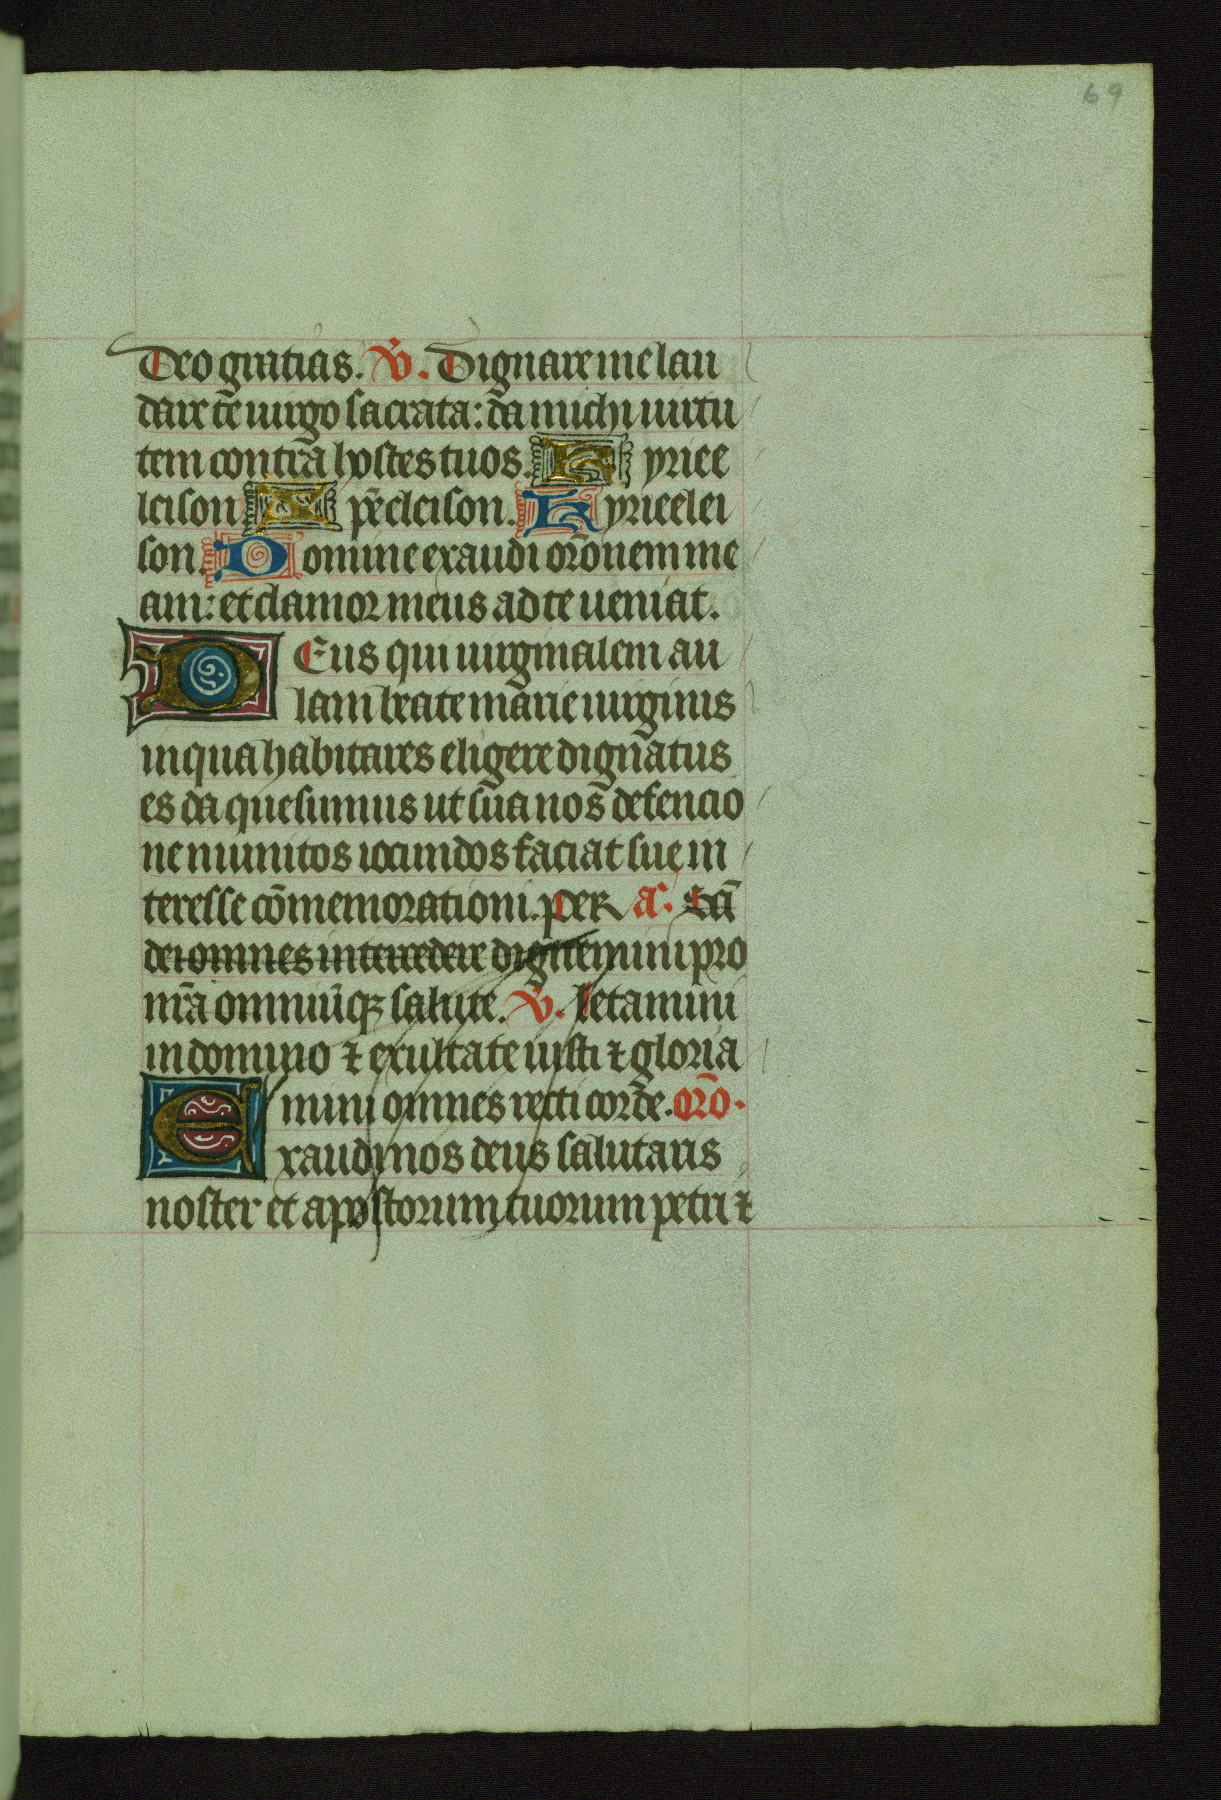 69
Deo gratias. V. Dignare me lau
dare te uirgo sacrata: da michi uirtu
tem contra hostes tuos. Kyriee
leison Xp̄eeleison. Kyrieelei
son. Domine exaudi or̄onem me
am: et clamor meus ad te ueniat.
DEus qui uirginalem au
lam beate marie uirginis
in qua habitares eligere dignatus
es da quesumus ut sua nos defencio
ne munitos iocundos faciat sue in
teresse com̄emorationi. per a͛. Sc̄i
dei omnes intercedere dignemini pro
nr̄a omniūqꝫ salute. V. letamini
in domino ⁊ exultate iusti ⁊ gloria
mini omnes recti corde. or̄o.
Exaudi nos deus salutaris
noster et apostorum tuorum petri ⁊